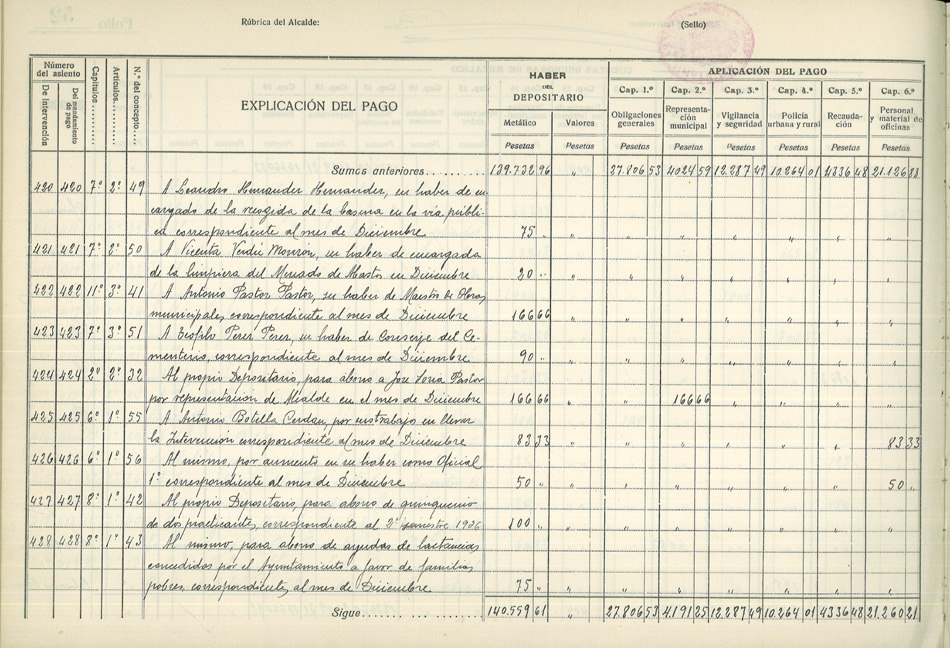 Rúbrica del Alcalde:
(Sello)
Número del asiento
De Intervención
Del mandamiento de pago
Capítulos
Artículos
N.º del concepto
EXPLICACIÓN DEL PAGO
HABER DEL DEPOSITARIO
Metálico
Pesetas
Valores
Pesetas
APLICACIÓN DEL PAGO
Cap. 1.º
Obligaciones generales
Pesetas
Cap. 2.º
Representación municipal
Pesetas
Cap. 3.º
Vigilancia y seguridad
Pesetas
Cap. 4.º
Policía urbana y rural
Pesetas
Cap. 5.º
Recaudación
Pesetas
Cap. 6.º
Personal y material de oficinas
Pesetas
Sumas anteriores 139.732 96 " 27.806 53 4024 59 12.287 49 10.264 01 4336 48 21.126 88
420 420 7º 2º 49 A Leandro Hernander, su haber de en-
cargado de la recogida de la basura en la vía públi-
ca correspondiente al mes de Diciembre 75 "
421 421 7º 2º 50 A Vicenta Verdú Monzón, su haber de encargada
de la limpieza del Mercado de Abastos en Diciembre 20 "
422 422 11º 3º 41 A Antonio Pastor Pastor, su haber de Maestro de Obras
municipales, correspondiente al mes de Diciembre 166 66
423 423 7º 3º 51 A Teófilo Perez Perez, su haber de Conserje del Ce-
menterio, correspondiente al mes de Diciembre 90 "
424 424 2º 2º 32 Al propio Depositario, para abono a Jose Soria Pastor
por representacion de Alcalde en el mes de Diciembre 166 66 " " 166 66
425 425 6º 1º 55 A Antonio Botella Cerdan, por su trabajo en llevar
la Intervención correspondiente al mes de Diciembre 83 33 83 33
426 426 6º 1º 56 Al mismo, por aumento en su haber como Oficial
1º correspondiente al mes de Diciembre 50 " 50 "
427 427 8º 1º 42 Al propio Depositario, para abono de quinquenio
de dos practicantes, correspondiente al 2º semestre 1936 100 "
428 428 8º 1º 43 Al mismo, para abono de ayudas de lactancias
concedidas por el Ayuntamiento a favor de familias
pobres, correspondiente al mes de Diciembre 75 "
Sigue 140.559 61 " 27.806 53 4.191 25 12.287 49 10.264 01 4336 48 21.260 21